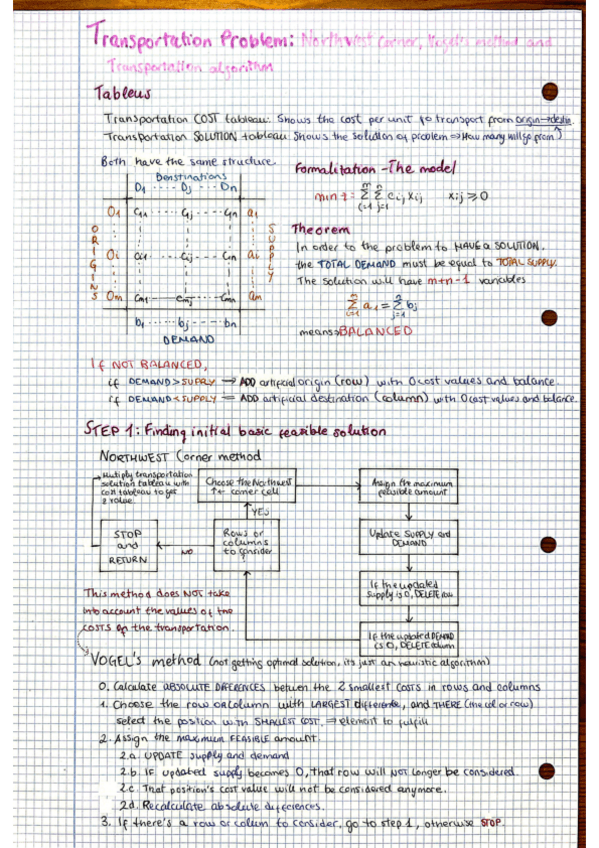 Transportation Problem: Northwest Corner, Vogel's method and
Transportation algorithm
Tableus
Transportation COST tableau: Shows the cost per unit to transport from origin→destin.
Transportation SOLUTION tableau: Shows the solution of problem ⇒ How many will go from
Both have the same structure.
Denstinations
D1 ---- Dj ---- Dn
ORIGINS
SUPPLY
O1 C11 ---- C1j ---- C1n a1
Oi Ci1 ---- Cij ---- Cin ai
Om Cm1 ---- Cmj ---- Cmn am
b1 ---- bj ---- bn
DEMAND
Formalitation - The model
min z = Σ Σ cij xij xij ≥ 0
i=1 j=1
Theorem
In order to the problem to HAVE a SOLUTION.
the TOTAL DEMAND must be equal to TOTAL SUPPLY.
The solution will have m+n-1 variables
Σ ai = Σ bj
i=1 j=1
means⇒BALANCED
If NOT BALANCED,
if DEMAND > SUPPLY → ADD artificial origin (row) with 0 cost values and balance.
if DEMAND < SUPPLY = ADD artificial destination (column) with 0 cost values and balance.
STEP 1: Finding initial basic feasible solution
NORTHWEST Corner method
Multiply transportation
solution tableau with
cost tableau to get
z value.
Choose the Northwest
corner cell
Assign the maximum
feasible amount
YES
STOP
and
RETURN
NO
Rows or
columns
to consider
Update SUPPLY and
DEMAND
If the updated
supply is 0, DELETE row
If the updated DEMAND
is 0, DELETE column
This method does NOT take
into account the values of the
COSTS of the transportation.
VOGEL'S method (not getting optimal solution, its just an heuristic algorithm)
0. Calculate ABSOLUTE DIFERENCES betwen the 2 smallest COSTS in rows and columns
1. Choose the row OR Column with LARGEST diference, and THERE (the col or row)
select the postion with SMALLEST COST. ⇒ element to fulfill
2. Assign the maximum FEASIBLE amount.
2.a. UPDATE supply and demand
2.b. IF updated supply becomes 0, that row will NOT longer be considered.
2.c. That position's cost value will not be considered anymore.
2d. Recalculate absolute diferences.
3. If there's a row or colum to consider, go to step 1, otherwise STOP.